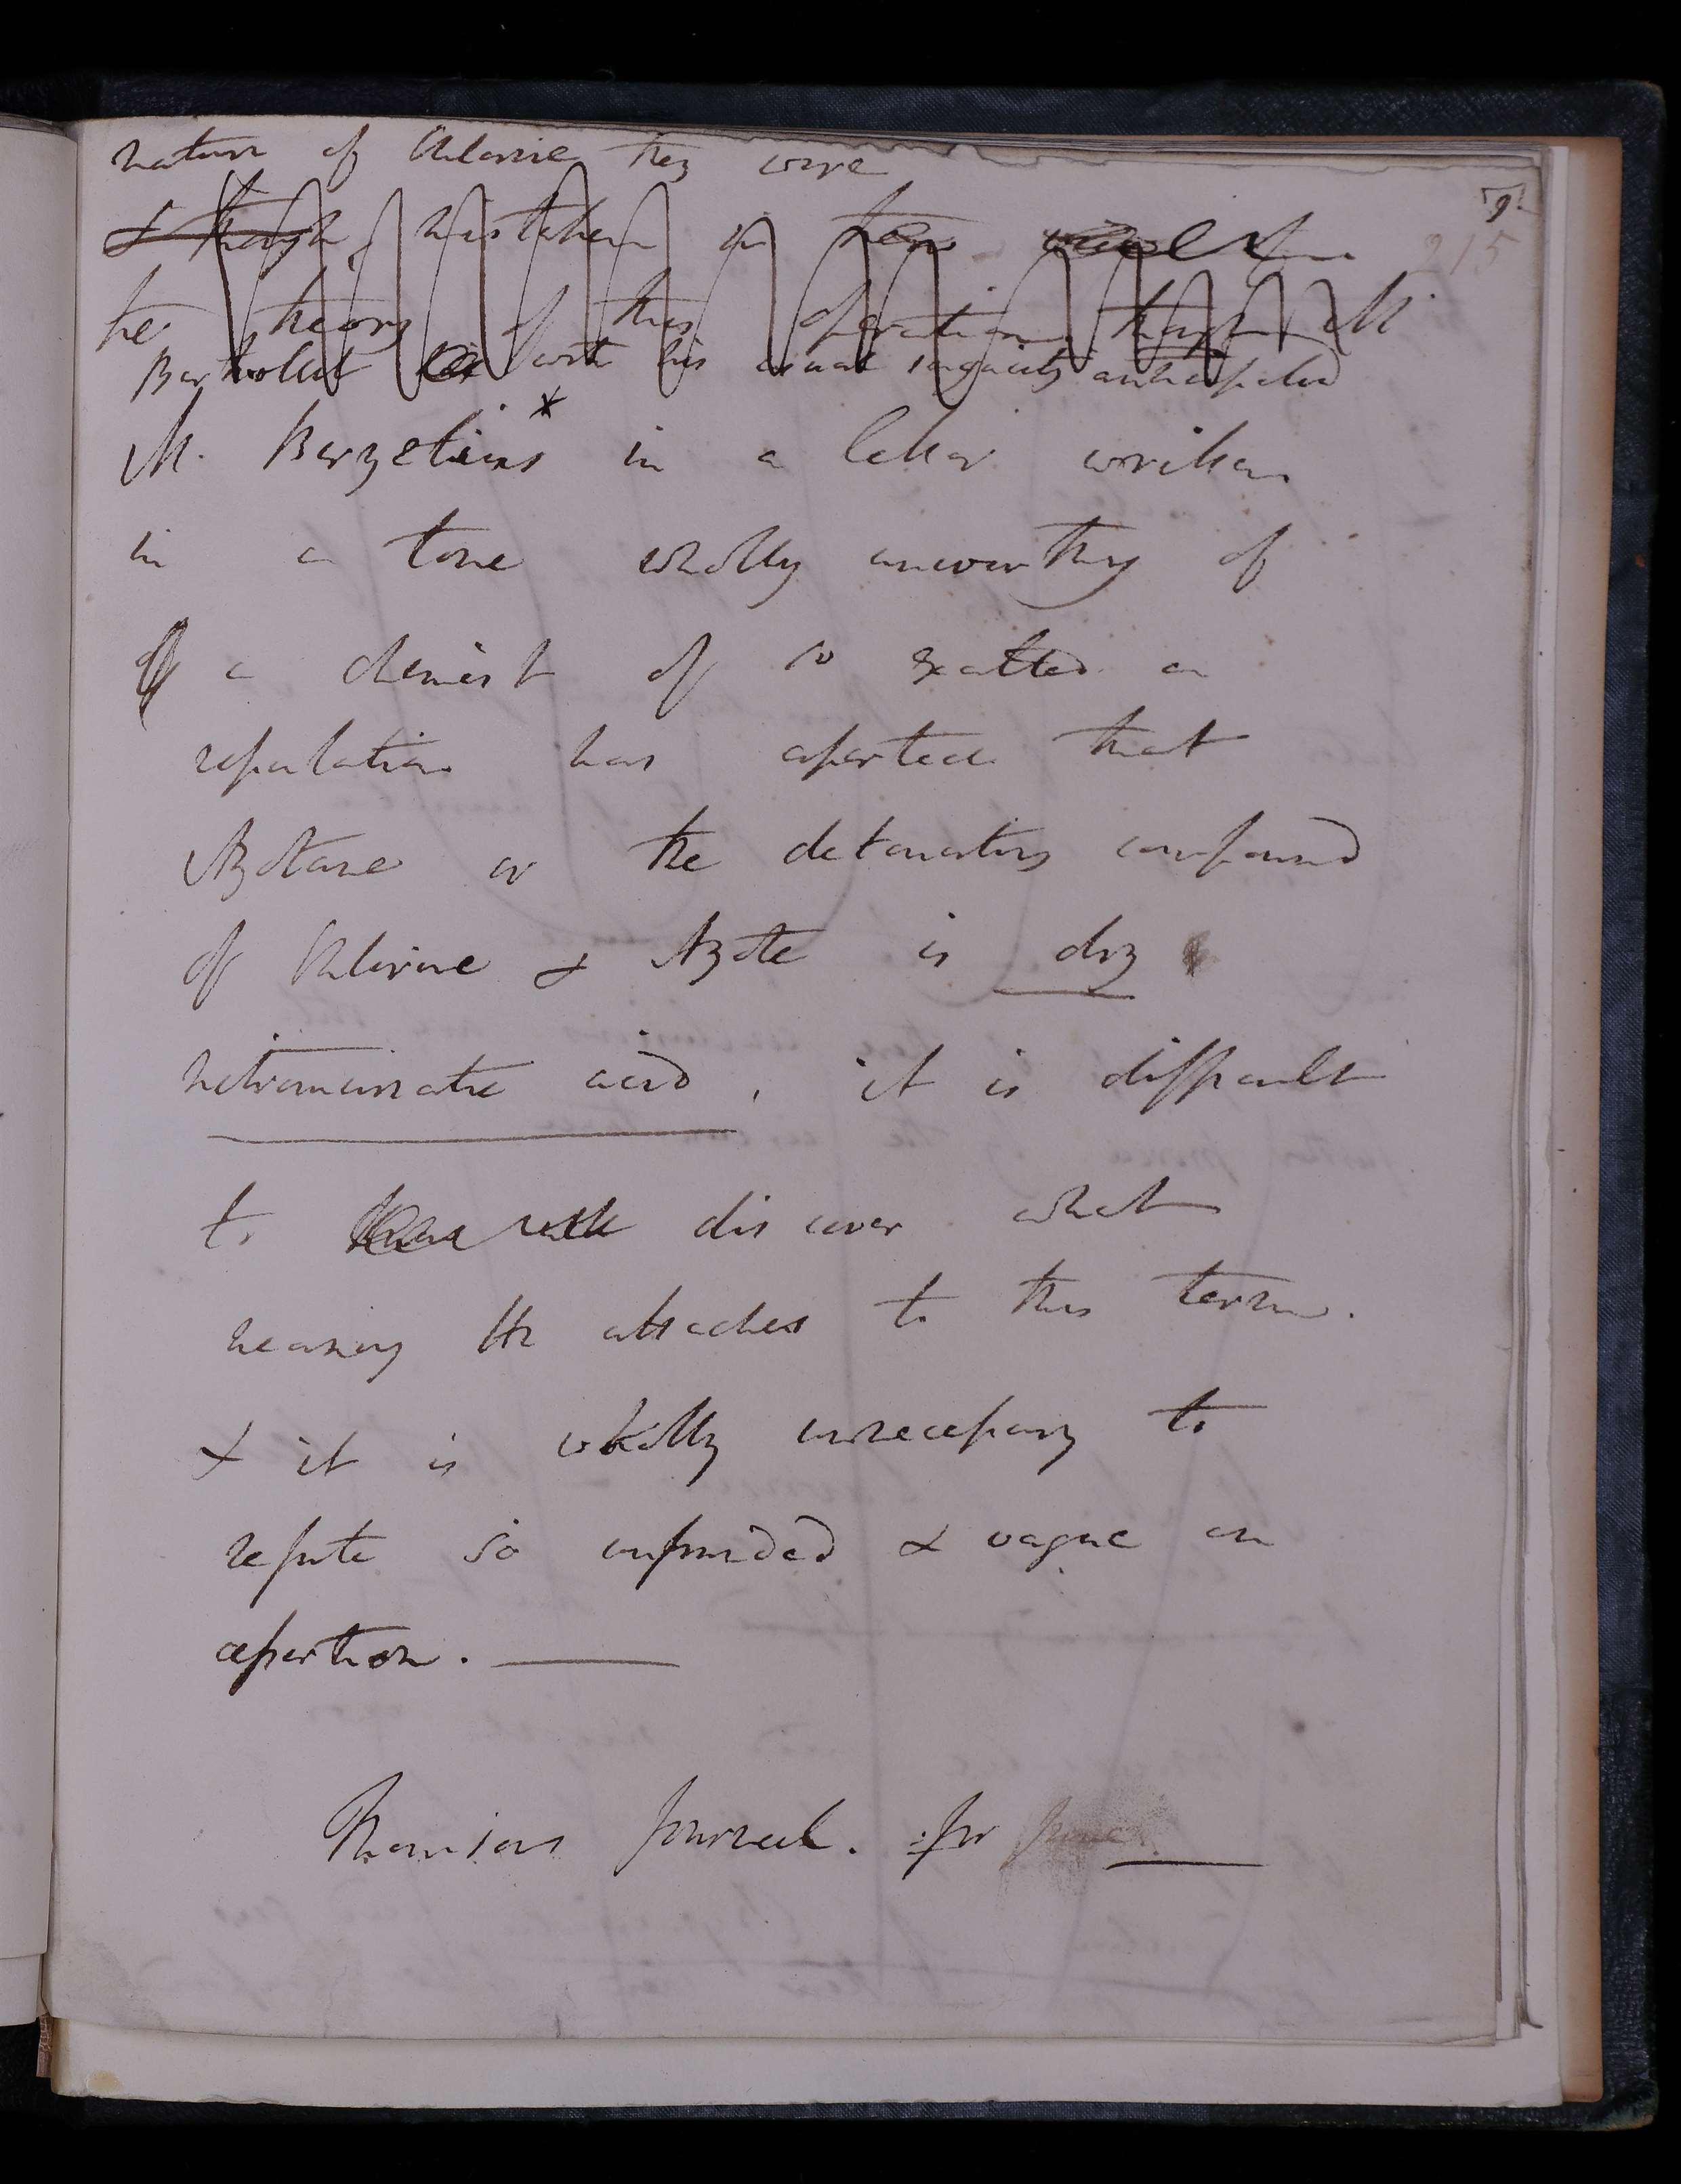 nature of Chlorine they were
& though mistaken in their views of
the theory of this operation though M
Berthollet with his usual sagacity anticipated
9
215
M. Berzelius* in a letter written
in a tone wholly unworthy of
of a chemist of so exalted a
reputation has asserted that
Azotane or the detonating compound
of Chlorine & Azote is dry
nitromuriatic acid, it is difficult
to discover what
meaning He attaches to this term.
& it is wholly unnecessary to
refute so unfounded & vague an
assertion.
Thomsons Journal. for